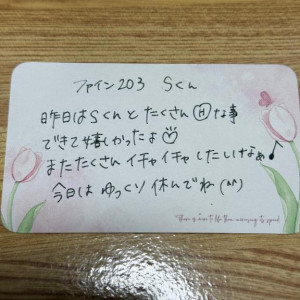 ファイン203 Sくん
昨日はSくんとたくさんⒽな事
できて嬉しかったよ♡
またたくさんイチャイチャしたいけなぁ♪
今日はゆっくり休んでね(^^)